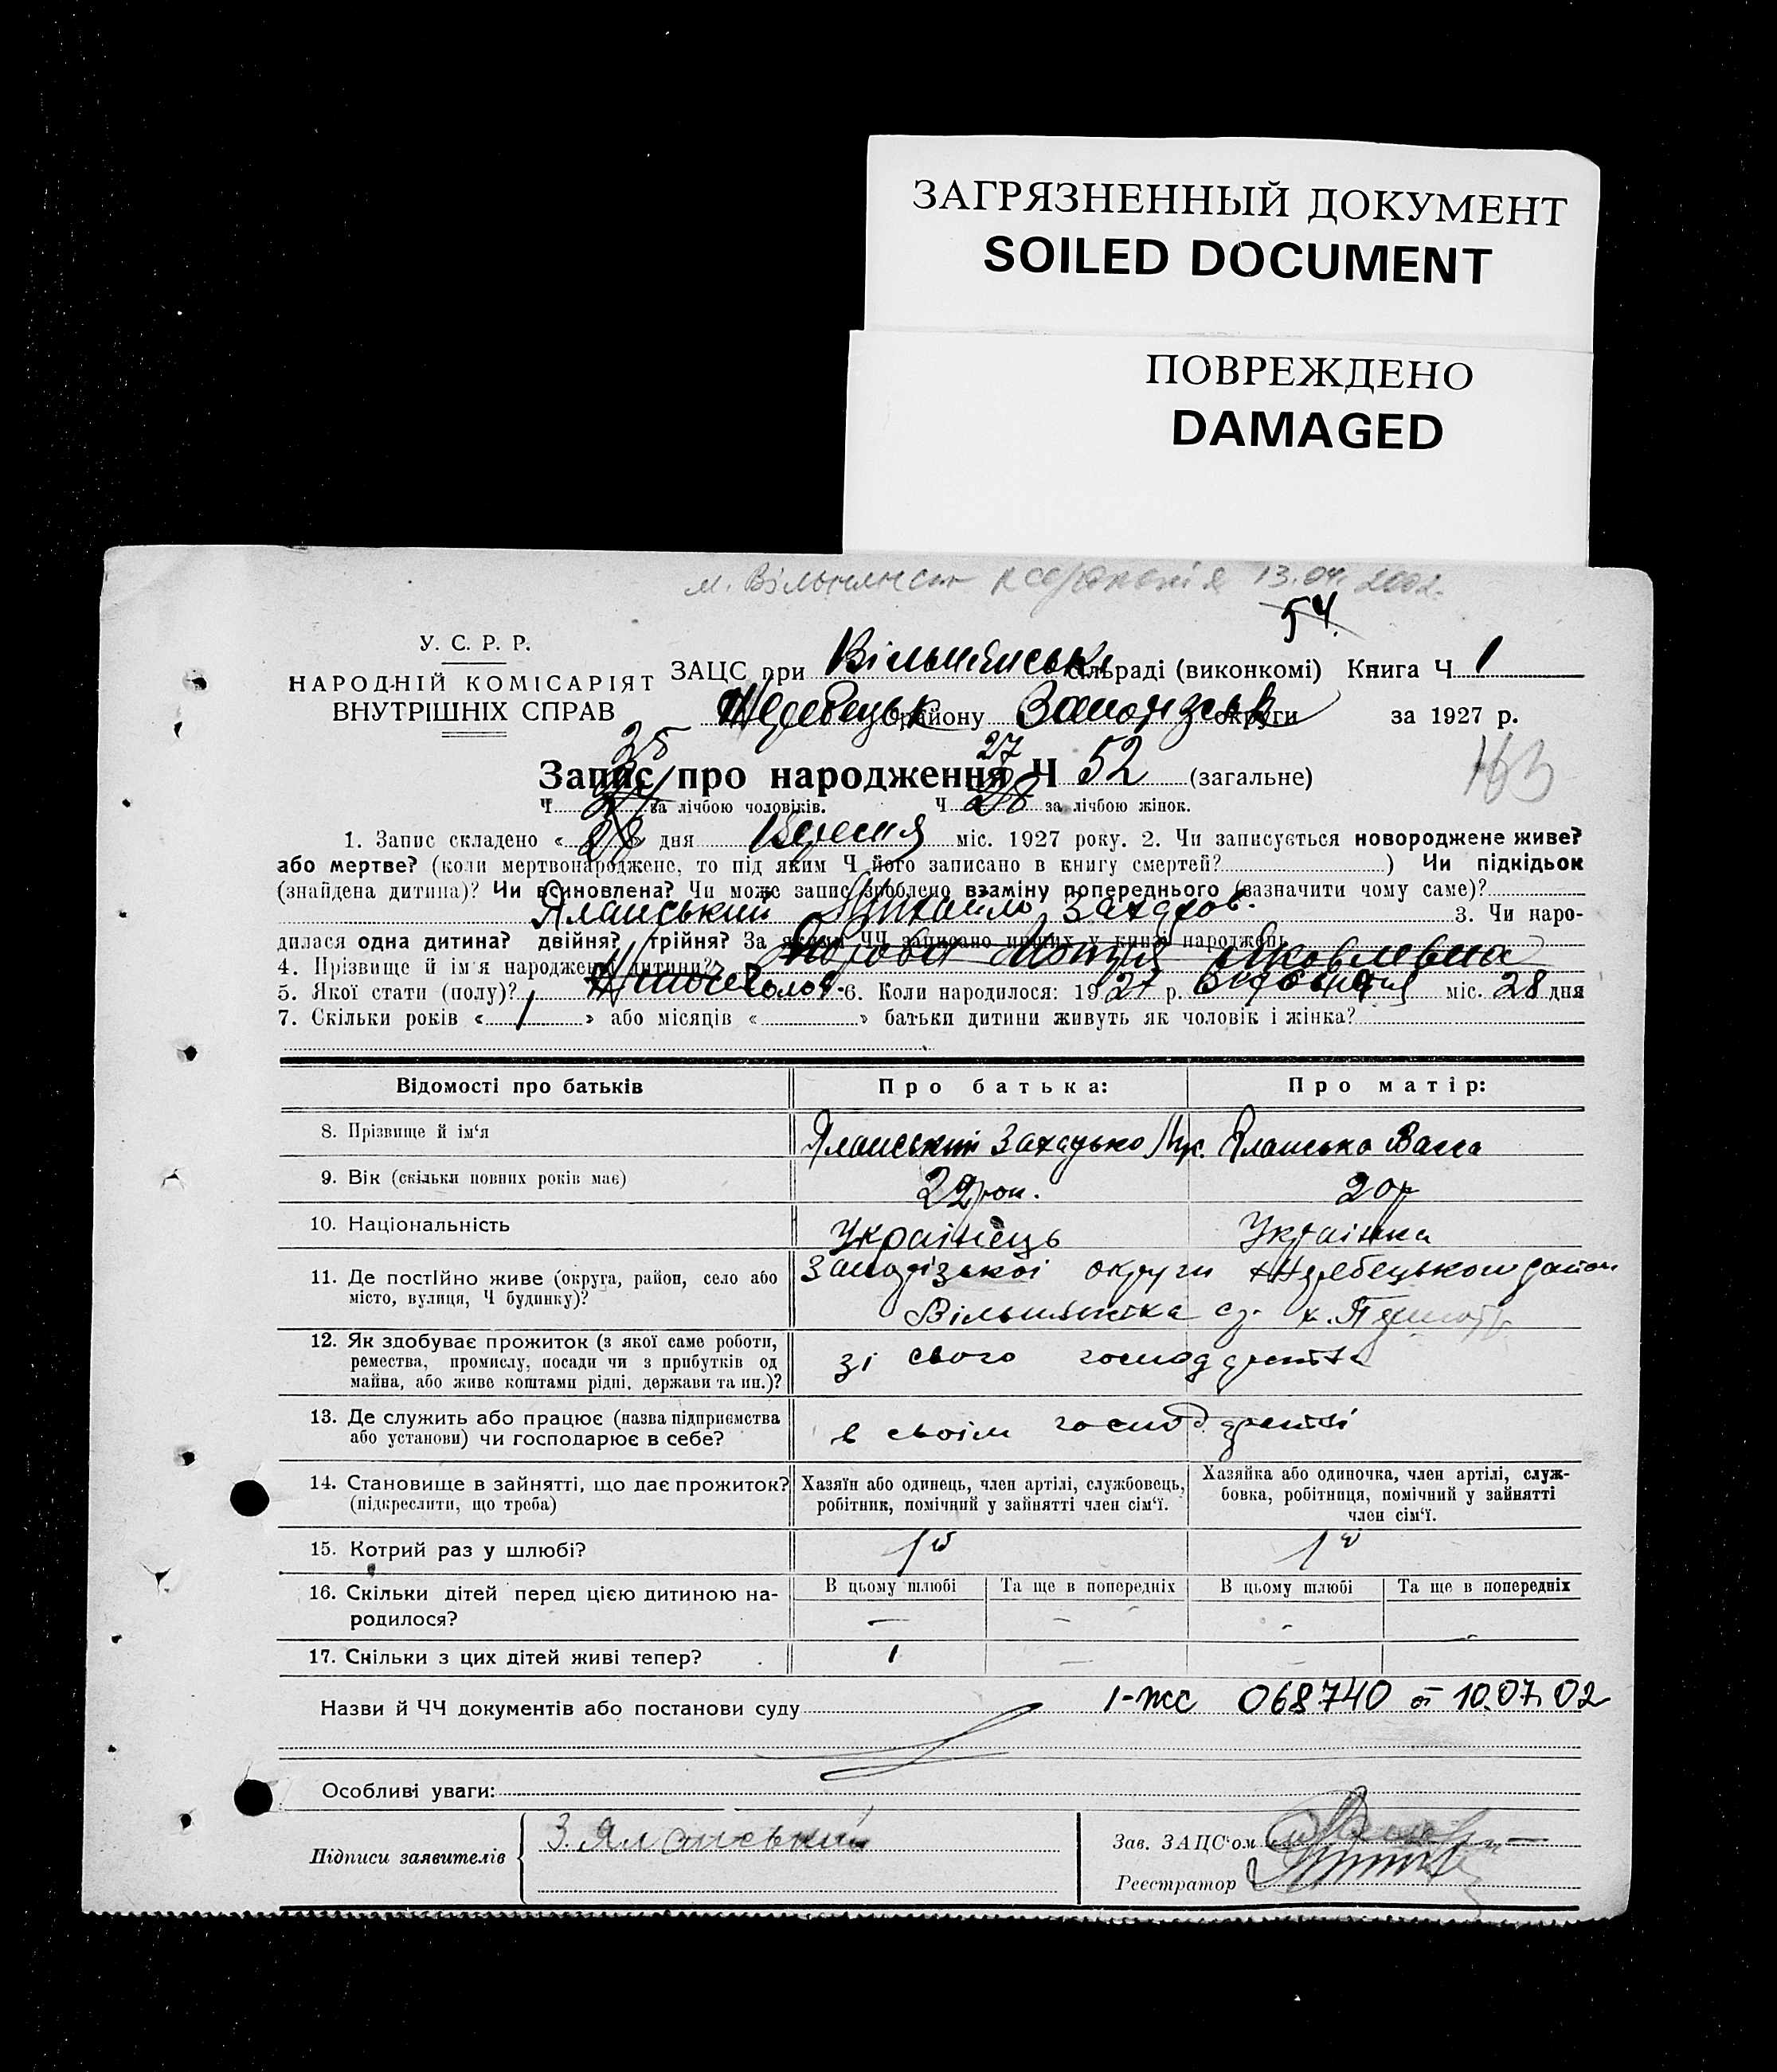 ЗАГРЯЗНЕННЫЙ ДОКУМЕНТ
SOILED DOCUMENT
ПОВРЕЖДЕНО
DAMAGED
13.04. 2002.
54.
У. С. Р. Р.
НАРОДНІЙ КОМІСАРІЯТ
ВНУТРІШНІХ СПРАВ
ЗАЦС при Вільнянській сільраді (виконкомі) Книга Ч 1
Жеребецьк району Запорізьк округи за 1927 р.
35 27
Запис про народження Ч 52 (загальне)
163
Ч за лічбою чоловіків. Ч 28 за лічбою жінок.
1. Запис складено « 28 » дня міс. 1927 року. 2. Чи записується новороджене живе?
або мертве? (коли мертвонароджене, то під яким Ч його записано в книгу смертей? ) Чи підкідьок
(знайдена дитина)? Чи всиновлена? Чи може запис зроблено взаміну попереднього (зазначити чому саме)?
Яланський Михайло Захаров. 3. Чи наро-
дилася одна дитина? двійня? трійня? За якими ЧЧ записано инших у книзі народжень
4. Прізвище й ім'я народженої дитини? Яковлевна
5. Якої стати (полу)? чолов. 6. Коли народилося: 1927 р. міс. 28 дня
7. Скільки років « 1 » або місяців « » батьки дитини живуть як чоловік і жінка?
Відомості про батьків Про батька: Про матір:
8. Прізвище й ім'я Яланський Захарько Яланська Васса
9. Вік (скільки повних років має) 22 рок. 20 р
10. Національність Українець Українка
11. Де постійно живе (округа, район, село або Запорізької округи Жеребецького район
місто, вулиця, Ч будинку)? Вільнянка
12. Як здобуває прожиток (з якої саме роботи,
ремества, промислу, посади чи з прибутків од зі свого господарства
майна, або живе коштами рідні, держави та ин.)?
13. Де служить або працює (назва підприємства
або установи) чи господарює в себе? в своїм господарстві
14. Становище в зайнятті, що дає прожиток? Хазяїн або одинець, член артілі, службовець, Хазяйка або одиночка, член артілі, служ-
(підкреслити, що треба) робітник, помічний у зайнятті член сім'ї. бовка, робітниця, помічний у зайнятті
член сім'ї.
15. Котрий раз у шлюбі? 1й 1й
16. Скільки дітей перед цією дитиною на- В цьому шлюбі Та ще в попередніх В цьому шлюбі Та ще в попередніх
родилося? – – - -
17. Скільки з цих дітей живі тепер? 1 – – –
Назви й ЧЧ документів або постанови суду 1-ЖС 068740 от 10.07.02
Особливі уваги:
Підписи заявителів З. Яланський
Зав. ЗАЦС'ом
Реєстратор